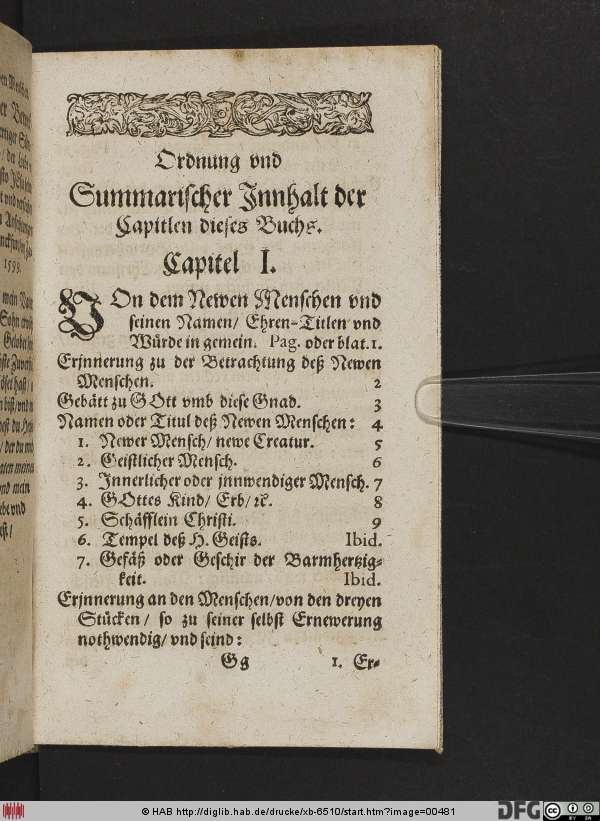 1593.
Ordnung vnd
Summarischer Jnnhalt der
Capitlen dieses Buchs.
Capitel I.
VOn dem Newen Menschen vnd
seinen Namen/ Ehren-Titlen vnd
Würde in gemein. Pag. oder blat. 1.
Erjnnerung zu der Betrachtung deß Newen
Menschen. 2
Gebätt zu GOtt vmb diese Gnad. 3
Namen oder Titul deß Newen Menschen: 4
1. Newer Mensch/ newe Creatur. 5
2. Geistlicher Mensch. 6
3. Jnnerlicher oder jnnwendiger Mensch. 7
4. GOttes Kind/ Erb/ ꝛc. 8
5. Schäfflein Christi. 9
6. Tempel deß H. Geists. Ibid.
7. Gefäß oder Geschir der Barmhertzig-
keit. Ibid.
Erjnnerung an den Menschen/von den dreyen
Stücken/ so zu seiner selbst Ernewerung
nothwendig/ vnd seind:
Gg 1. Er-
© HAB http://diglib.hab.de/drucke/xb-6510/start.htm?image=00481
DFG